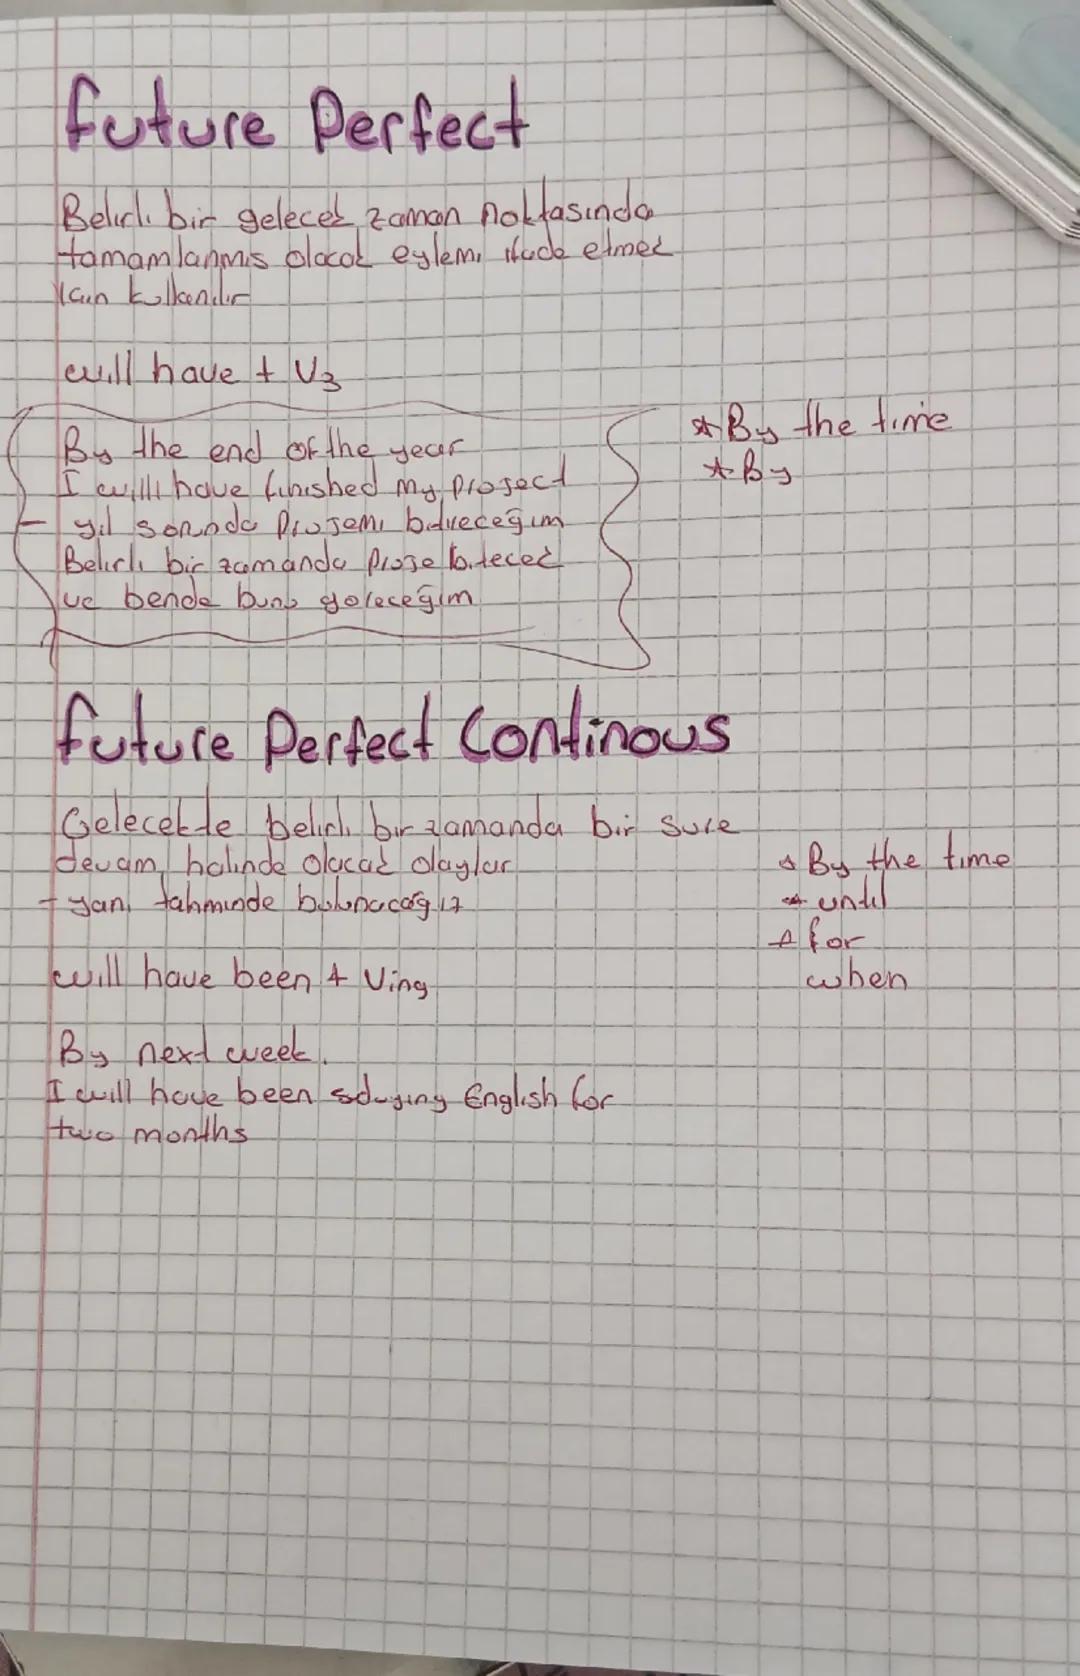 future Perfect
Belirli bir gelecek zaman noktasında
tamamlanmış olacak eylemi ifade etmek
için kullanılır
will have + V3
* By the time
* By
By the end of the year
I willl have finished my project
yıl sonunda Projemi bitireceğim
Belirli bir zamanda Proje bitecek
ve bende bunu göreceğim
future Perfect Continous
Gelecekte belirli bir zamanda bir süre
devam halinde olacak olaylar
yani tahminde bulunacağız
* By the time
* until
* for
when
will have been + Ving
By next week.
I will have been sduying English for
two months